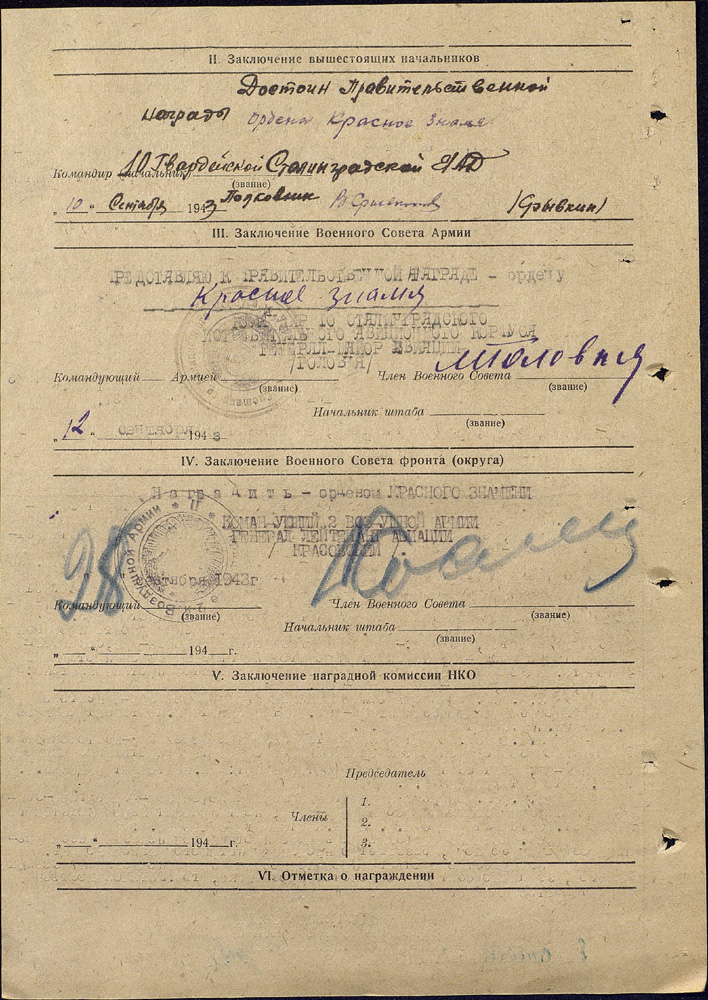 II. Заключение вышестоящих начальников
Достоин Правительственной
награды Ордена Красное Знамя.
Командир (начальник) 10 Гвардейской Сталинградской ИАД
(звание)
„ 10 “ Сентября 1943 Полковник (Срывкин)
III. Заключение Военного Совета Армии
ПРЕДСТАВЛЯЮ К ПРАВИТЕЛЬСТВЕННОЙ НАГРАДЕ – ордену
Красное знамя
КОМАНДИР 10 СТАЛИНГРАДСКОГО
ИСТРЕБИТЕЛЬНОГО АВИАЦИОННОГО КОРПУСА
ГЕНЕРАЛ-МАЙОР АВИАЦИИ
/ГОЛОВНЯ/ МГоловня
Командующий Армией Член Военного Совета
(звание) (звание)
Начальник штаба
(звание)
„ 12 “ сентября 1943
IV. Заключение Военного Совета фронта (округа)
Наградить – орденом КРАСНОГО ЗНАМЕНИ
КОМАНДУЮЩИЙ 2 ВОЗДУШНОЙ АРМИИ
ГЕНЕРАЛ ЛЕЙТЕНАНТ АВИАЦИИ
/ КРАСОВСКИЙ /
28 сентября 1943г
Командующий Член Военного Совета
(звание) (звание)
Начальник штаба
(звание)
„ “ 194 г.
V. Заключение наградной комиссии НКО
Председатель
Члены
1.
2.
3.
„ “ 194 г.
VI. Отметка о награждении